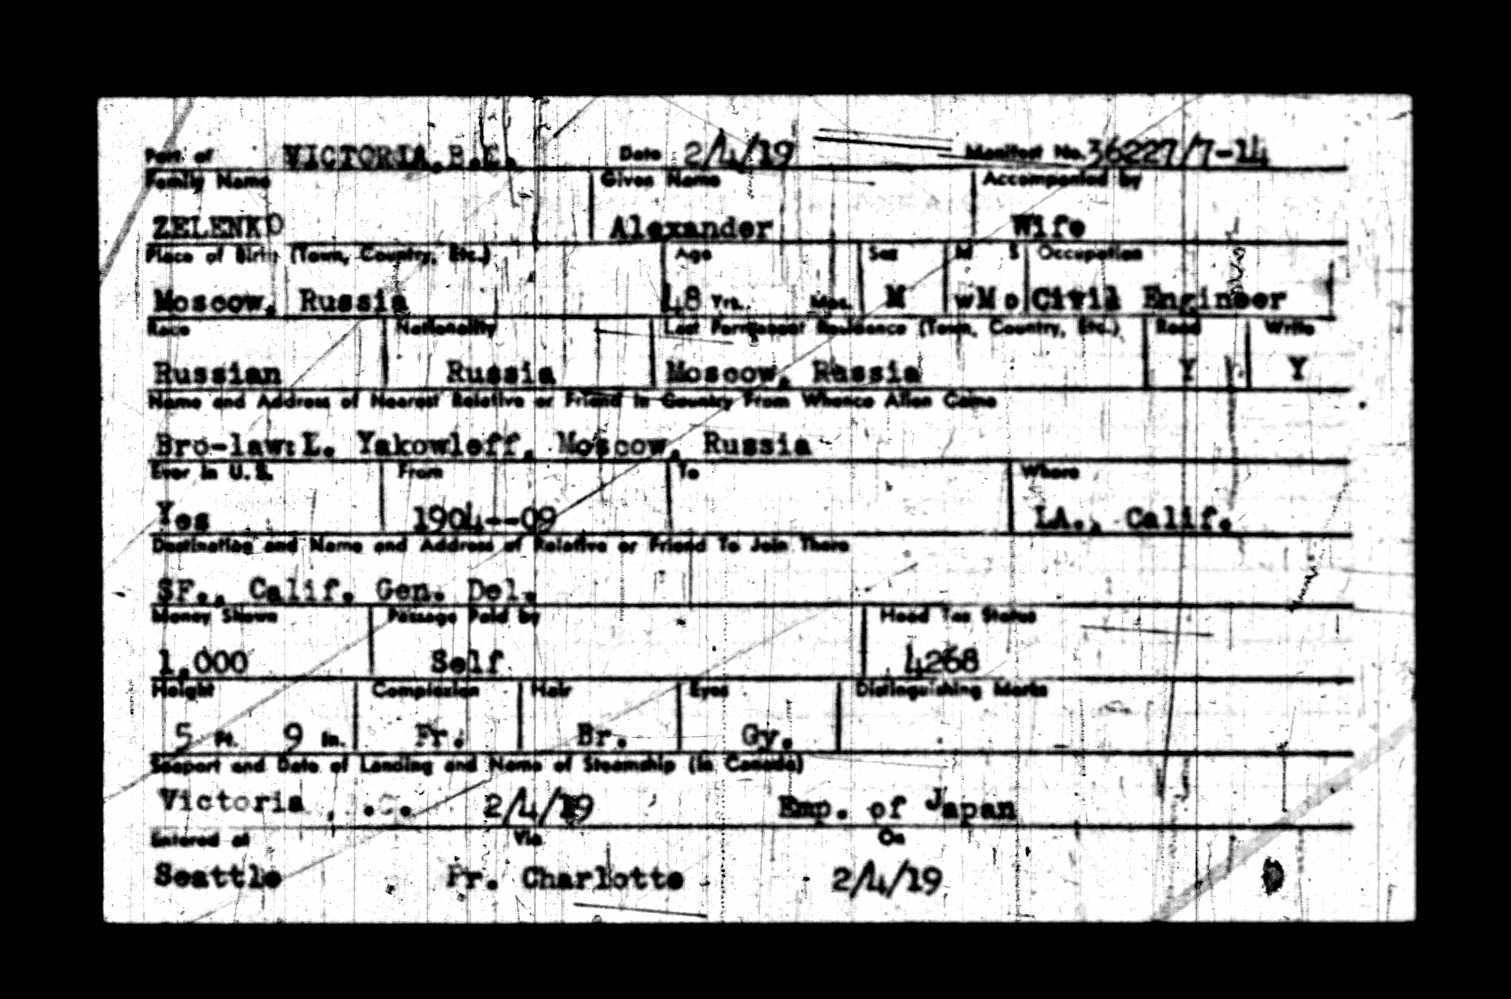 Port of VICTORIA, B.C. Date 2/4/19 Manifest No. 36227/7-14
Family Name Given Name Accompanied by
ZELENKO Alexander Wife
Place of Birth (Town, Country, Etc.) Age Sex M S Occupation
Moscow, Russia 48 Yrs. Mos. M W M D Civil Engineer
Race Nationality Last Permanent Residence (Town, Country, Etc.) Read Write
Russian Russia Moscow, Russia Y Y
Name and Address of Nearest Relative or Friend in Country From Whence Alien Came
Bro-law: L. Yakowleff, Moscow, Russia
Ever in U. S. From To Where
Yes 1904--09 LA., Calif.
Destination and Name and Address of Relative or Friend To Join There
SF., Calif. Gen. Del.
Money Shown Passage Paid by Head Tax Status
1,000 Self 4268
Height Complexion Hair Eyes Distinguishing Marks
5 Ft. 9 In. Fr. Br. Gy.
Seaport and Date of Landing and Name of Steamship (In Canada)
Victoria, .C. 2/4/19 Emp. of Japan
Entered at Via On
Seattle Pr. Charlotte 2/4/19